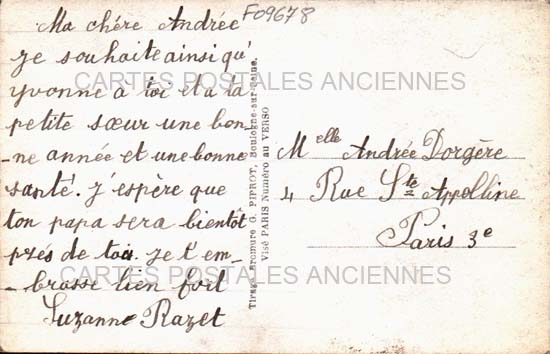 F09678
Ma chére Andrée
Je souhaite ainsi qu'
yvonne a toi et a ta
petite sœur une bon-
-ne année et une bonne
santé. J'espère que
ton papa sera bientôt
prés de toi. Je t'em-
-brasse bien fort
Suzanne Razet
Tirage bromure G. PIPROT, Boulogne-sur-Seine.
Visé PARIS Numéro au VERSO
Melle Andrée Dorgère
4 Rue Ste Appolline
Paris 3e
CARTES POSTALES ANCIENNES
CARTES POSTALES ANCIENNES